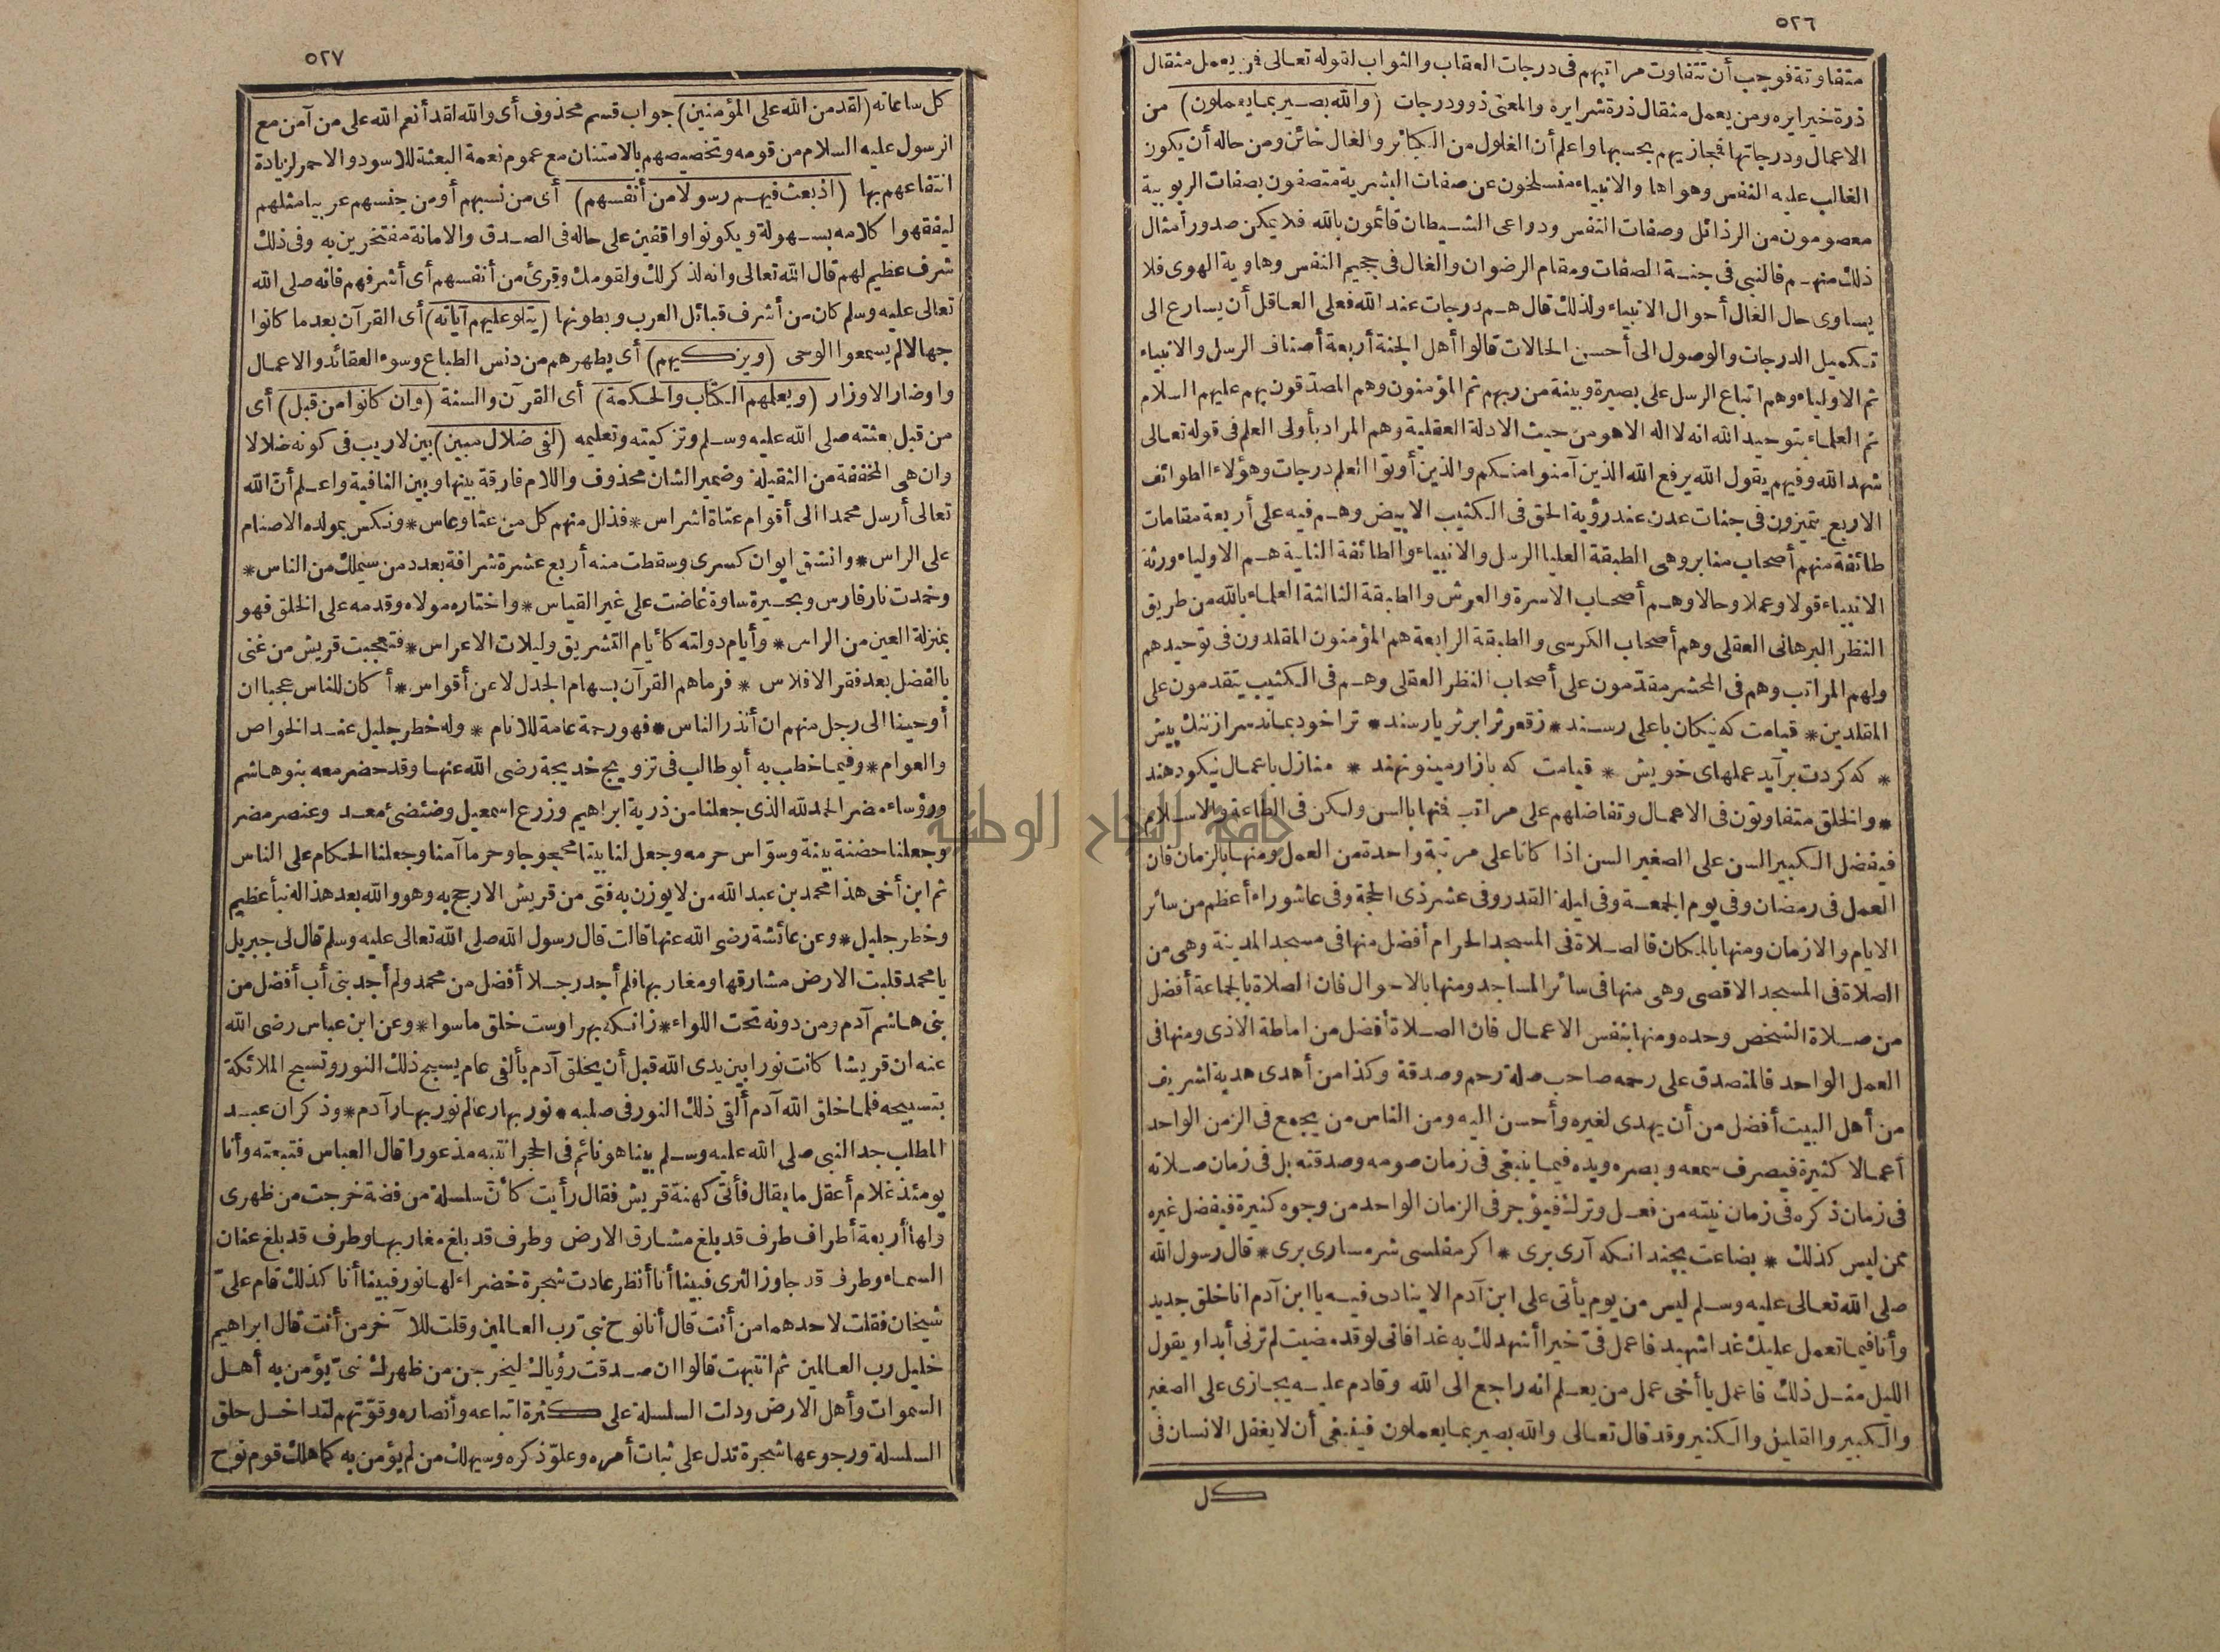 ٥٢٦
متفاوتة فوجب أن تتفاوت مراتبهم فى درجات العقاب والثواب لقوله تعالى فمن يعمل مثقال
ذرة خيرا يره ومن يعمل مثقال ذرة شرا يره والمعنى ذوو درجات (والله بصير بما يعملون) من
الاعمال ودرجاتها فيجازيهم بحسبها واعلم أن الغلول من الكبائر والغال خائن ومن حاله أن يكون
الغالب عليه النفس وهواها والانبياء منسلخون عن صفات البشرية متصفون بصفات الربوبية
معصومون من الرذائل وصفات النفس ودواعى الشيطان قائمون بالله فلا يمكن صدور أمثال
ذلك منهم فالنبى فى جنة الصفات ومقام الرضوان والغال فى جحيم النفس وهاوية الهوى فلا
يساوى حال الغال أحوال الانبياء ولذلك قال هم درجات عند الله فعلى العاقل أن يسارع الى
تكميل الدرجات والوصول الى أحسن الحالات قالوا أهل الجنة أربعة أصناف الرسل والانبياء
ثم الاولياء وهم اتباع الرسل على بصيرة وبينة من ربهم ثم المؤمنون وهم المصدّقون بهم عليهم السلام
ثم العلماء بتوحيد الله انه لا اله الا هو من حيث الادلة العقلية وهم المراد بأولى العلم فى قوله تعالى
شهد الله وفيهم يقول الله يرفع الله الذين آمنوا منكم والذين أوتوا العلم درجات وهؤلاء الطوائف
الاربع يتميزون فى جنات عدن عند رؤية الحق فى الكثيب الابيض وهم فيه على أربعة مقامات
طائفة منهم أصحاب منابر وهى الطبقة العليا الرسل والانبياء والطائفة الثانية هم الاولياء ورثة
الانبياء قولا وعملا وحالا وهم أصحاب الاسرة والعرش والطبقة الثالثة العلماء بالله من طريق
النظر البرهانى العقلى وهم أصحاب الكرسى والطبقة الرابعة هم المؤمنون المقلدون فى توحيدهم
ولهم المراتب وهم فى المحشر مقدّمون على أصحاب النظر العقلى وهم فى الكثيب يتقدمون على
المقلدين * قيامت كه نيكان باعلى رسند * زقعر ثرا بر ثريا رسند * ترا خود بماند سر از ننك پيش
* كه كردت برآيد عملهاى خويش * قيامت كه بازار مينو نهند * منازل باعمال نيكو دهند
* والخلق متفاوتون فى الاعمال وتفاضلهم على مراتب فمنها بالسن ولكن فى الطاعة والاسلام
فيفضل الكبير السن على الصغير السن اذا كانا على مرتبة واحدة من العمل ومنها بالزمان فان
العمل فى رمضان وفى يوم الجمعة وفى ليلة القدر وفى عشر ذى الحجة وفى عاشوراء أعظم من سائر
الايام والازمان ومنها بالمكان فالصلاة فى المسجد الحرام أفضل منها فى مسجد المدينة وهى من
الصلاة فى المسجد الاقصى وهى منها فى سائر المساجد ومنها بالاحوال فان الصلاة بالجماعة أفضل
من صلاة الشخص وحده ومنها بنفس الاعمال فان الصلاة أفضل من اماطة الاذى ومنها فى
العمل الواحد فالمتصدق على رحمه صاحب صلة رحم وصدقة وكذا من أهدى هدية لشريف
من أهل البيت أفضل من أن يهدى لغيره وأحسن اليه ومن الناس من يجمع فى الزمن الواحد
أعمالا كثيرة فيصرف سمعه وبصره ويده فيما ينبغى فى زمان صومه وصدقته بل فى زمان صلاته
فى زمان ذكره فى زمان نيته من فعل وترك فيؤجر فى الزمان الواحد من وجوه كثيرة فيفضل غيره
ممن ليس كذلك * بضاعت بچندانكه آرى برى * اكر مفلسى شرمسارى برى * قال رسول الله
صلى الله تعالى عليه وسلم ليس من يوم يأتى على ابن آدم الا ينادى فيه يا ابن آدم انا خلق جديد
وأنا فيما تعمل عليك غدا شهيد فاعمل فىّ خيرا أشهد لك به غدا فانى لو قد مضيت لم ترنى أبدا ويقول
الليل مثل ذلك فاعمل يا أخى عمل من يعلم انه راجع الى الله وقادم عليه يجازى على الصغير
والكبير والقليل والكثير وقد قال تعالى والله بصير بما يعملون فينبغى أن لا يغفل الانسان فى
كل
٥٢٧
كل ساعاته (لقد من الله على المؤمنين) جواب قسم محذوف أى والله لقد أنعم الله على من آمن مع
الرسول عليه السلام من قومه وتخصيصهم بالامتنان مع عموم نعمة البعثة للاسود والاحمر لزيادة
انتفاعهم بها (اذ بعث فيهم رسولا من أنفسهم) أى من نسبهم أو من جنسهم عربيا مثلهم
ليفقهوا كلامه بسهولة ويكونوا واقفين على حاله فى الصدق والامانة مفتخرين به وفى ذلك
شرف عظيم لهم قال الله تعالى وانه لذكر لك ولقومك وقرئ من أنفسهم أى أشرفهم فانه صلى الله
تعالى عليه وسلم كان من أشرف قبائل العرب وبطونها (يتلو عليهم آياته) أى القرآن بعد ما كانوا
جهالا لم يسمعوا الوحى (ويزكيهم) أى يطهرهم من دنس الطباع وسوء العقائد والاعمال
واوضار الاوزار (ويعلمهم الكتاب والحكمة) أى القرآن والسنة (وان كانوا من قبل) أى
من قبل بعثته صلى الله عليه وسلم وتزكيته وتعليمه (لفى ضلال مبين) بين لا ريب فى كونه ضلالا
وان هى المخففة من الثقيلة وضمير الشان محذوف واللام فارقة بينها وبين النافية واعلم أن الله
تعالى أرسل محمدا الى أقوام عتاة اشراس * فذل منهم كل من عتا وعاس * ونكس بمولده الاصنام
على الراس * وانشق ايوان كسرى وسقطت منه أربع عشرة شرافة بعدد من سيملك من الناس *
وخمدت نار فارس وبحيرة ساوة غاضت على غير القياس * واختاره مولاه وقدمه على الخلق فهو
بمنزلة العين من الراس * وأيام دولته كأيام التشريق وليلات الاعراس * فتعجبت قريش من غنى
بالفضل بعد فقر الافلاس * فرماهم القرآن بسهام الجدل لا عن أقواس * أكان للناس عجبا ان
أوحينا الى رجل منهم ان أنذر الناس * فهو رحمة عامة للانام * وله خطر جليل عند الخواص
والعوام * وفيما خطب به أبو طالب فى تزويج خديجة رضى الله عنها وقد حضر معه بنو هاشم
ورؤساء مضر الحمد لله الذى جعلنا من ذرية ابراهيم وزرع اسمعيل وضئضئ معد وعنصر مضر
وجعلنا حضنة بيته وسوّاس حرمه وجعل لنا بيتا محجوجا وحرما آمنا وجعلنا الحكام على الناس
ثم ابن أخى هذا محمد بن عبد الله من لا يوزن به فتى من قريش الا رجح به وهو والله بعد هذا له نبأ عظيم
وخطر جليل * وعن عائشة رضى الله عنها قالت قال رسول الله صلى الله تعالى عليه وسلم قال لى جبريل
يا محمد قلبت الارض مشارقها ومغاربها فلم أجد رجلا أفضل من محمد ولم أجد بنى أب أفضل من
بنى هاشم آدم ومن دونه تحت اللواء * زانكه بهر اوست خلق ماسوا * وعن ابن عباس رضى الله
عنه ان قريشا كانت نورا بين يدى الله قبل أن يخلق آدم بألفى عام يسبح ذلك النور وتسبح الملائكة
بتسبيحه فلما خلق الله آدم ألقى ذلك النور فى صلبه * نور بهار عالم نور بهار آدم * وذكر ان عبد
المطلب جد النبى صلى الله عليه وسلم بينا هو نائم فى الحجر انتبه مذعورا قال العباس فتبعته وأنا
يومئذ غلام أعقل ما يقال فأتى كهنة قريش فقال رأيت كأنّ سلسلة من فضة خرجت من ظهرى
ولها أربعة أطراف طرف قد بلغ مشارق الارض وطرف قد بلغ مغاربها وطرف قد بلغ عنان
السماء وطرف قد جاوز الثرى فبينا أنا أنظر عادت شجرة خضراء لها نور فبينا أنا كذلك قام علىّ
شيخان فقلت لاحدهما من أنت قال أنا نوح نبىّ رب العالمين وقلت للآخر من أنت قال ابراهيم
خليل رب العالمين ثم انتبهت قالوا ان صدقت رؤياك ليخرجن من ظهرك نبىّ يؤمن به أهل
السموات وأهل الارض ودلت السلسلة على كثرة اتباعه وأنصاره وقوّتهم لتداخل حلق
السلسلة ورجوعها شجرة تدل على ثبات أمره وعلوّ ذكره وسيهلك من لم يؤمن به كما هلك قوم نوح
جامعة النجاح الوطنية